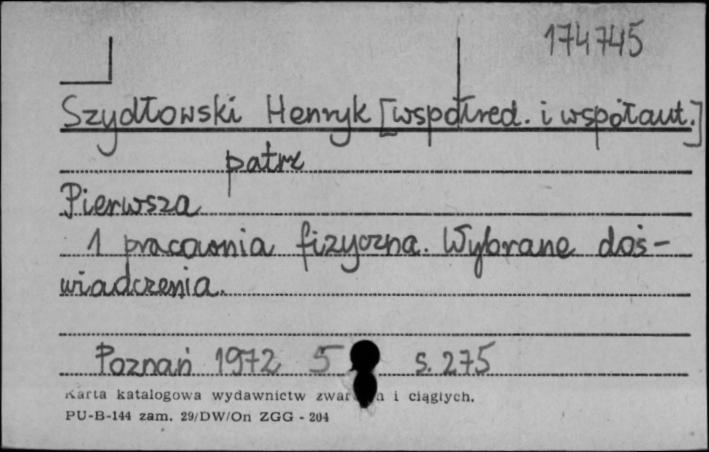 174745
Szydłowski Henryk [współred. i współaut.]
patrz
Pierwsza
1 pracownia fizyczna. Wybrane doś-
wiadczenia.
Poznań 1972 5 s. 275
Karta katalogowa wydawnictw i ciągłych.
PU-B-144 zam. 29/DW/On ZGG - 204